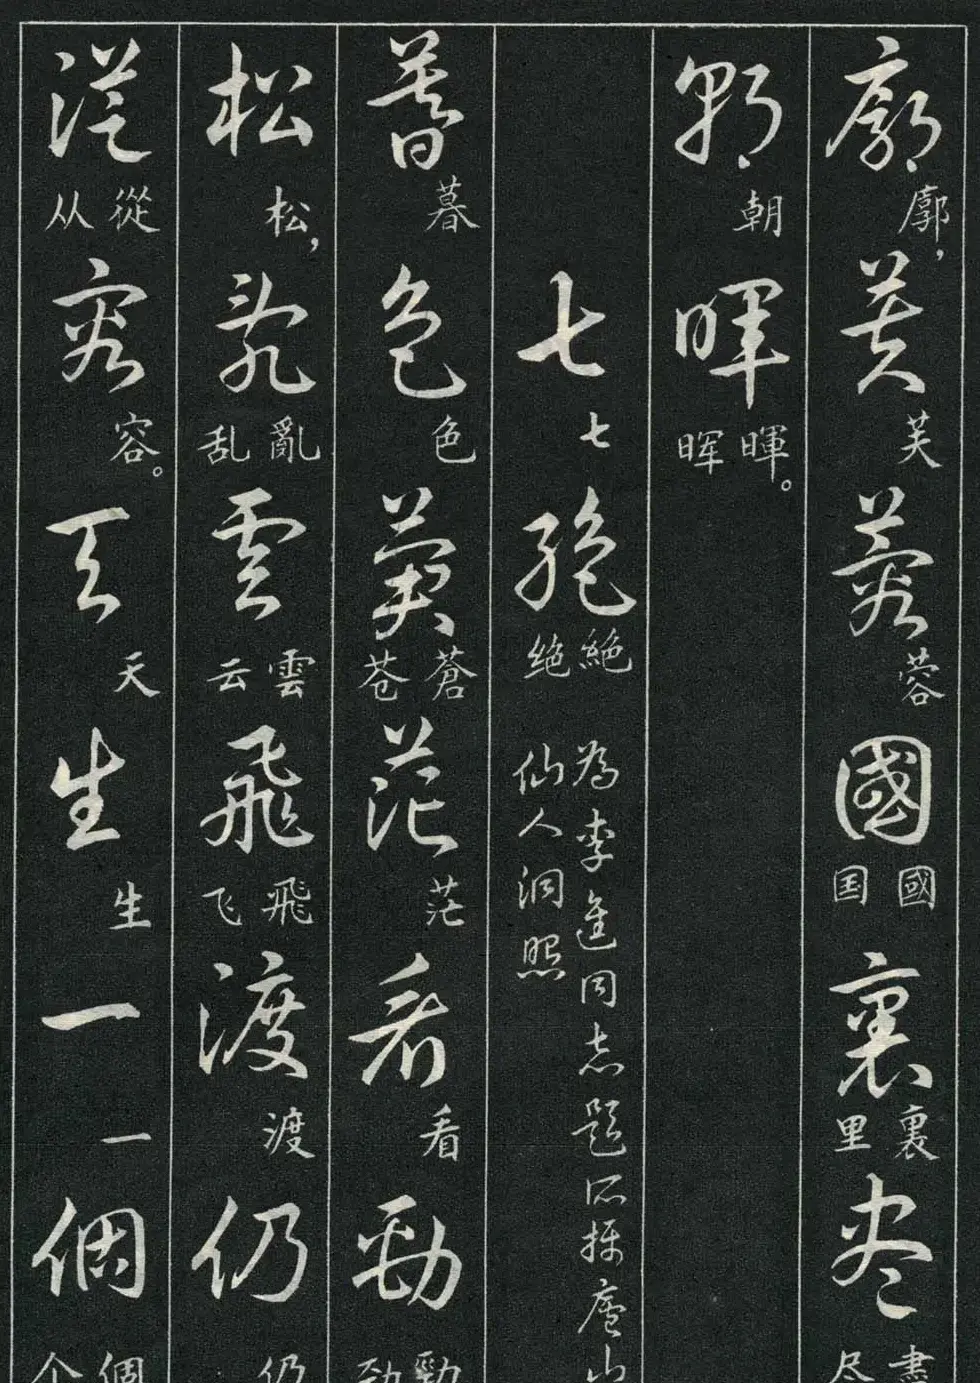 廓芙蓉國裏尽
廓，芙蓉國国裏里盡尽
朝暉
朝暉晖。
七絕
七絕绝
為李進同志題所攝廬山
仙人洞照
暮色蒼茫看勁
暮色蒼苍茫看勁劲
松亂雲飛渡仍
松，亂乱雲云飛飞渡仍
從容天生一個
從从容。天生一個个